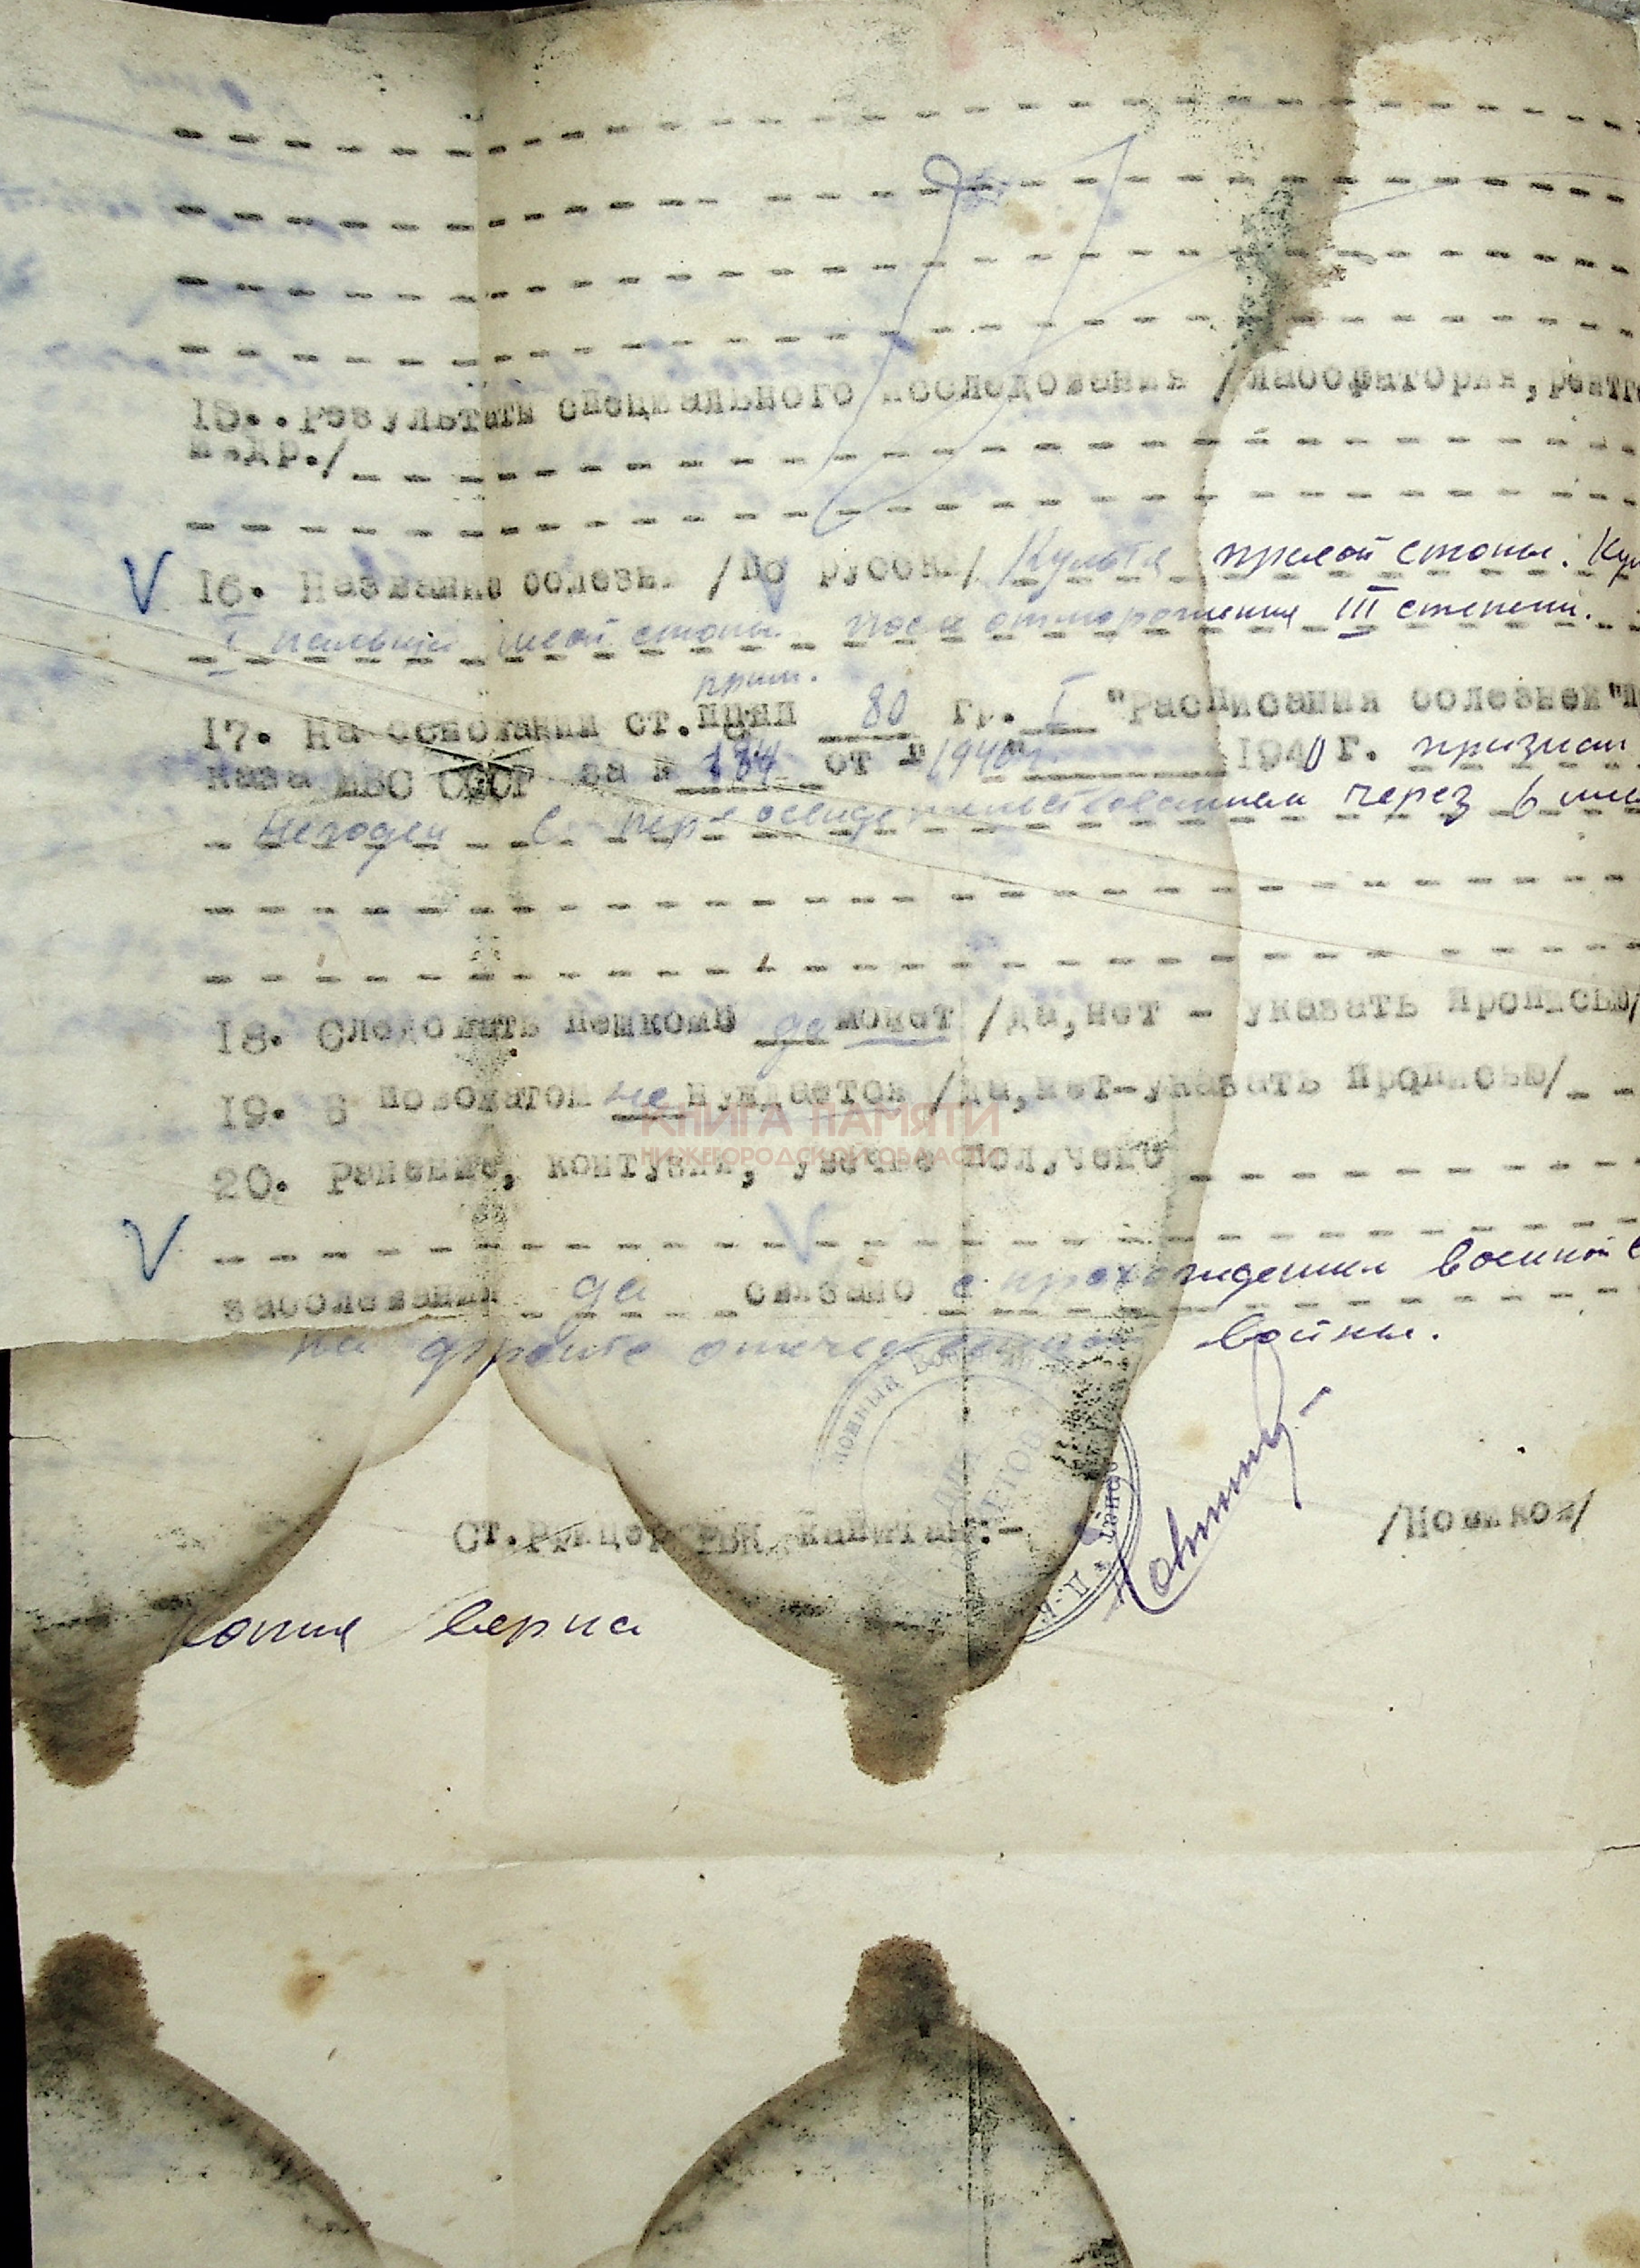 15. Результаты специального исследования /лаборатория, рентг
и др./
16. Название болезни /по русски/ Культя правой стопы. Кул
I пальца левой стопы после отморожения III степени.
прик.
17. На основании ст. 80 гр. I "Расписания болезней" п
каза НВО СССР за № 184 от "1940г. 1940 г. признан
Негоден с переосвидетельствованием через 6 мес
18. Следовать пешком да может /да, нет - указать прописью/
19. В провожатом не нуждается /да, нет-указать прописью/
20. Ранение, контузия, увечье получено
заболевания да связано с прохождением военной с
на фронте отечественной войны.
Ст. РВК капитан:- /Новиков/
Копия верна
КНИГА ПАМЯТИ
НИЖЕГОРОДСКОЙ ОБЛАСТИ